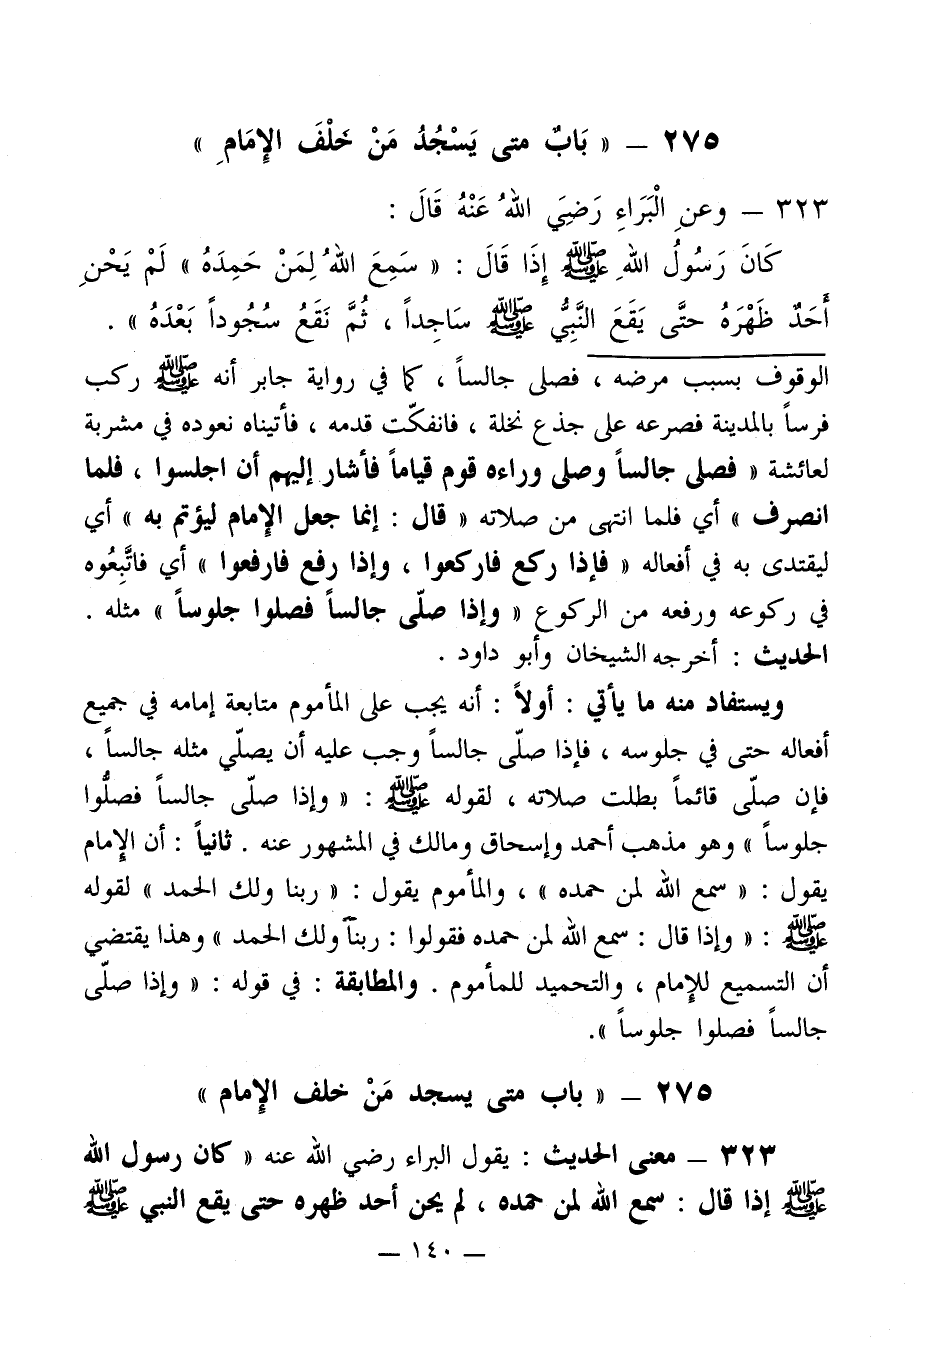 ٢٧٥ – « بَابٌ متى يَسْجُدُ مَنْ خَلْفَ الإِمَامِ »
٣٢٣ – وعنِ الْبَرَاءِ رَضِيَ اللهُ عَنْهُ قَالَ :
كَانَ رَسُولُ اللهِ ﷺ إِذَا قَالَ : « سَمِعَ اللهُ لِمَنْ حَمِدَهُ » لَمْ يَحْنِ
أَحَدٌ ظَهْرَهُ حتَّى يَقَعَ النَّبِيُّ ﷺ سَاجِداً ، ثُمَّ نَقَعُ سُجُوداً بَعْدَهُ » .
الوقوف بسبب مرضه ، فصلى جالساً ، كما في رواية جابر أنه ﷺ ركب
فرساً بالمدينة فصرعه على جذع نخلة ، فانفكّت قدمه ، فأتيناه نعوده في مشربة
لعائشة « فصلى جالساً وصلى وراءه قوم قياماً فأشار إليهم أن اجلسوا ، فلما
انصرف » أي فلما انتهى من صلاته « قال : إنما جعل الإمام ليؤتم به » أي
ليقتدى به في أفعاله « فإذا ركع فاركعوا ، وإذا رفع فارفعوا » أي فاتَّبِعُوه
في ركوعه ورفعه من الركوع « وإذا صلّى جالساً فصلوا جلوساً » مثله .
الحديث : أخرجه الشيخان وأبو داود .
ويستفاد منه ما يأتي : أولاً : أنه يجب على المأموم متابعة إمامه في جميع
أفعاله حتى في جلوسه ، فإذا صلّى جالساً وجب عليه أن يصلّي مثله جالساً ،
فإن صلّى قائماً بطلت صلاته ، لقوله ﷺ : « وإذا صلّى جالساً فصلُّوا
جلوساً » وهو مذهب أحمد وإسحاق ومالك في المشهور عنه . ثانياً : أن الإمام
يقول : « سمع الله لمن حمده » ، والمأموم يقول : « ربنا ولك الحمد » لقوله
ﷺ : « وإذا قال : سمع الله لمن حمده فقولوا : ربنا ولك الحمد » وهذا يقتضي
أن التسميع للإمام ، والتحميد للمأموم . والمطابقة : في قوله : « وإذا صلّى
جالساً فصلوا جلوساً ».
٢٧٥ – « باب متى يسجد مَنْ خلف الإمام »
٣٢٣ – معنى الحديث : يقول البراء رضي الله عنه « كان رسول الله
ﷺ إذا قال : سمع الله لمن حمده ، لم يحن أحد ظهره حتى يقع النبي ﷺ
– ١٤٠ –